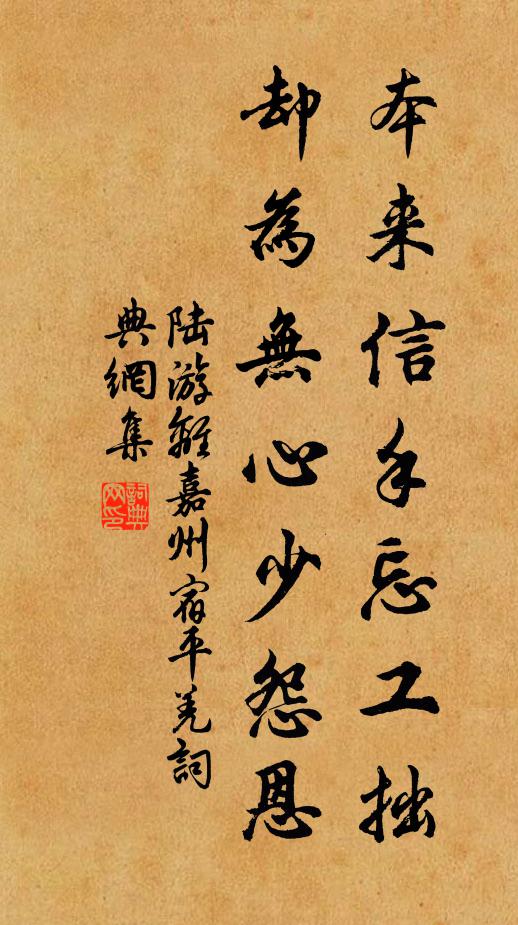 本来信手忘工拙
却為無心少怨恩
陆游離嘉州宿平羌詞
典網集
詞典
网印